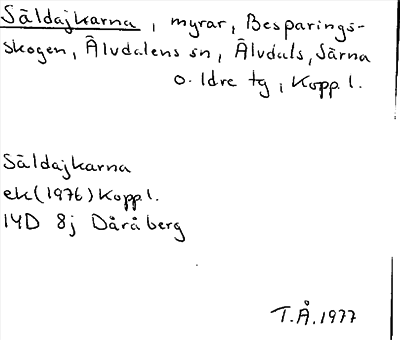 Säldajkarna, myrar, Besparings-
skogen, Älvdalens sn, Älvdals, Särna
o. Idre tg, Kopp l.
Säldajkarna
ek (1976) Kopp l.
14D 8j Dåråberg
T.Å. 1977